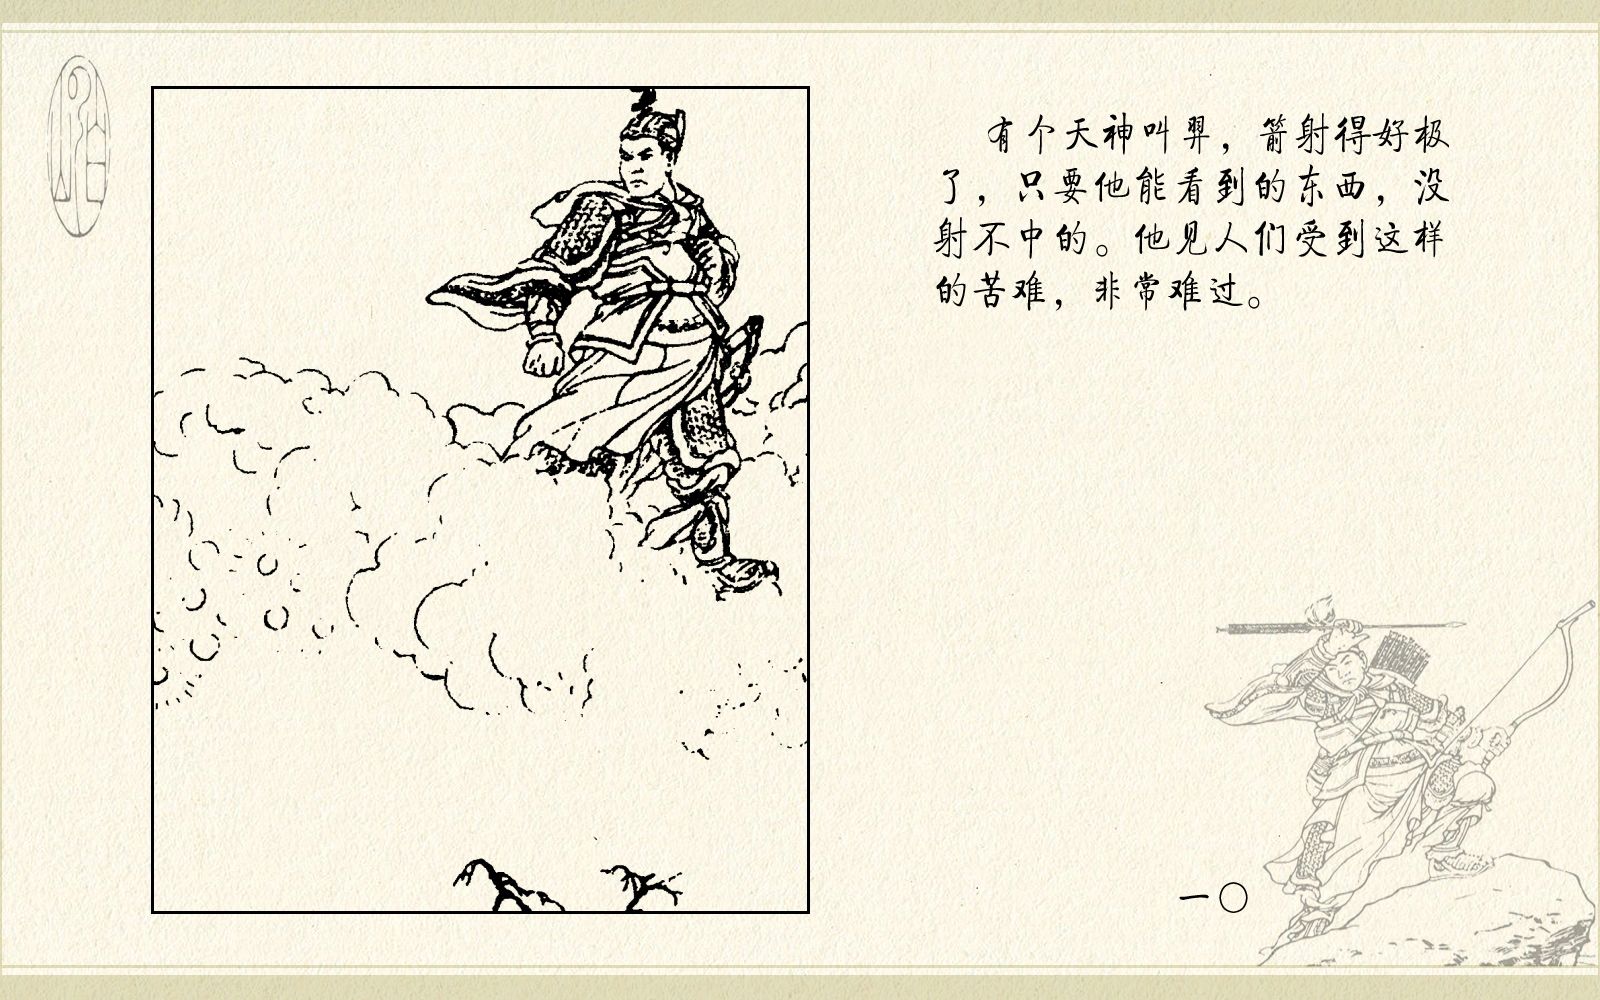 有个天神叫羿，箭射得好极
了，只要他能看到的东西，没
射不中的。他见人们受到这样
的苦难，非常难过。
一〇